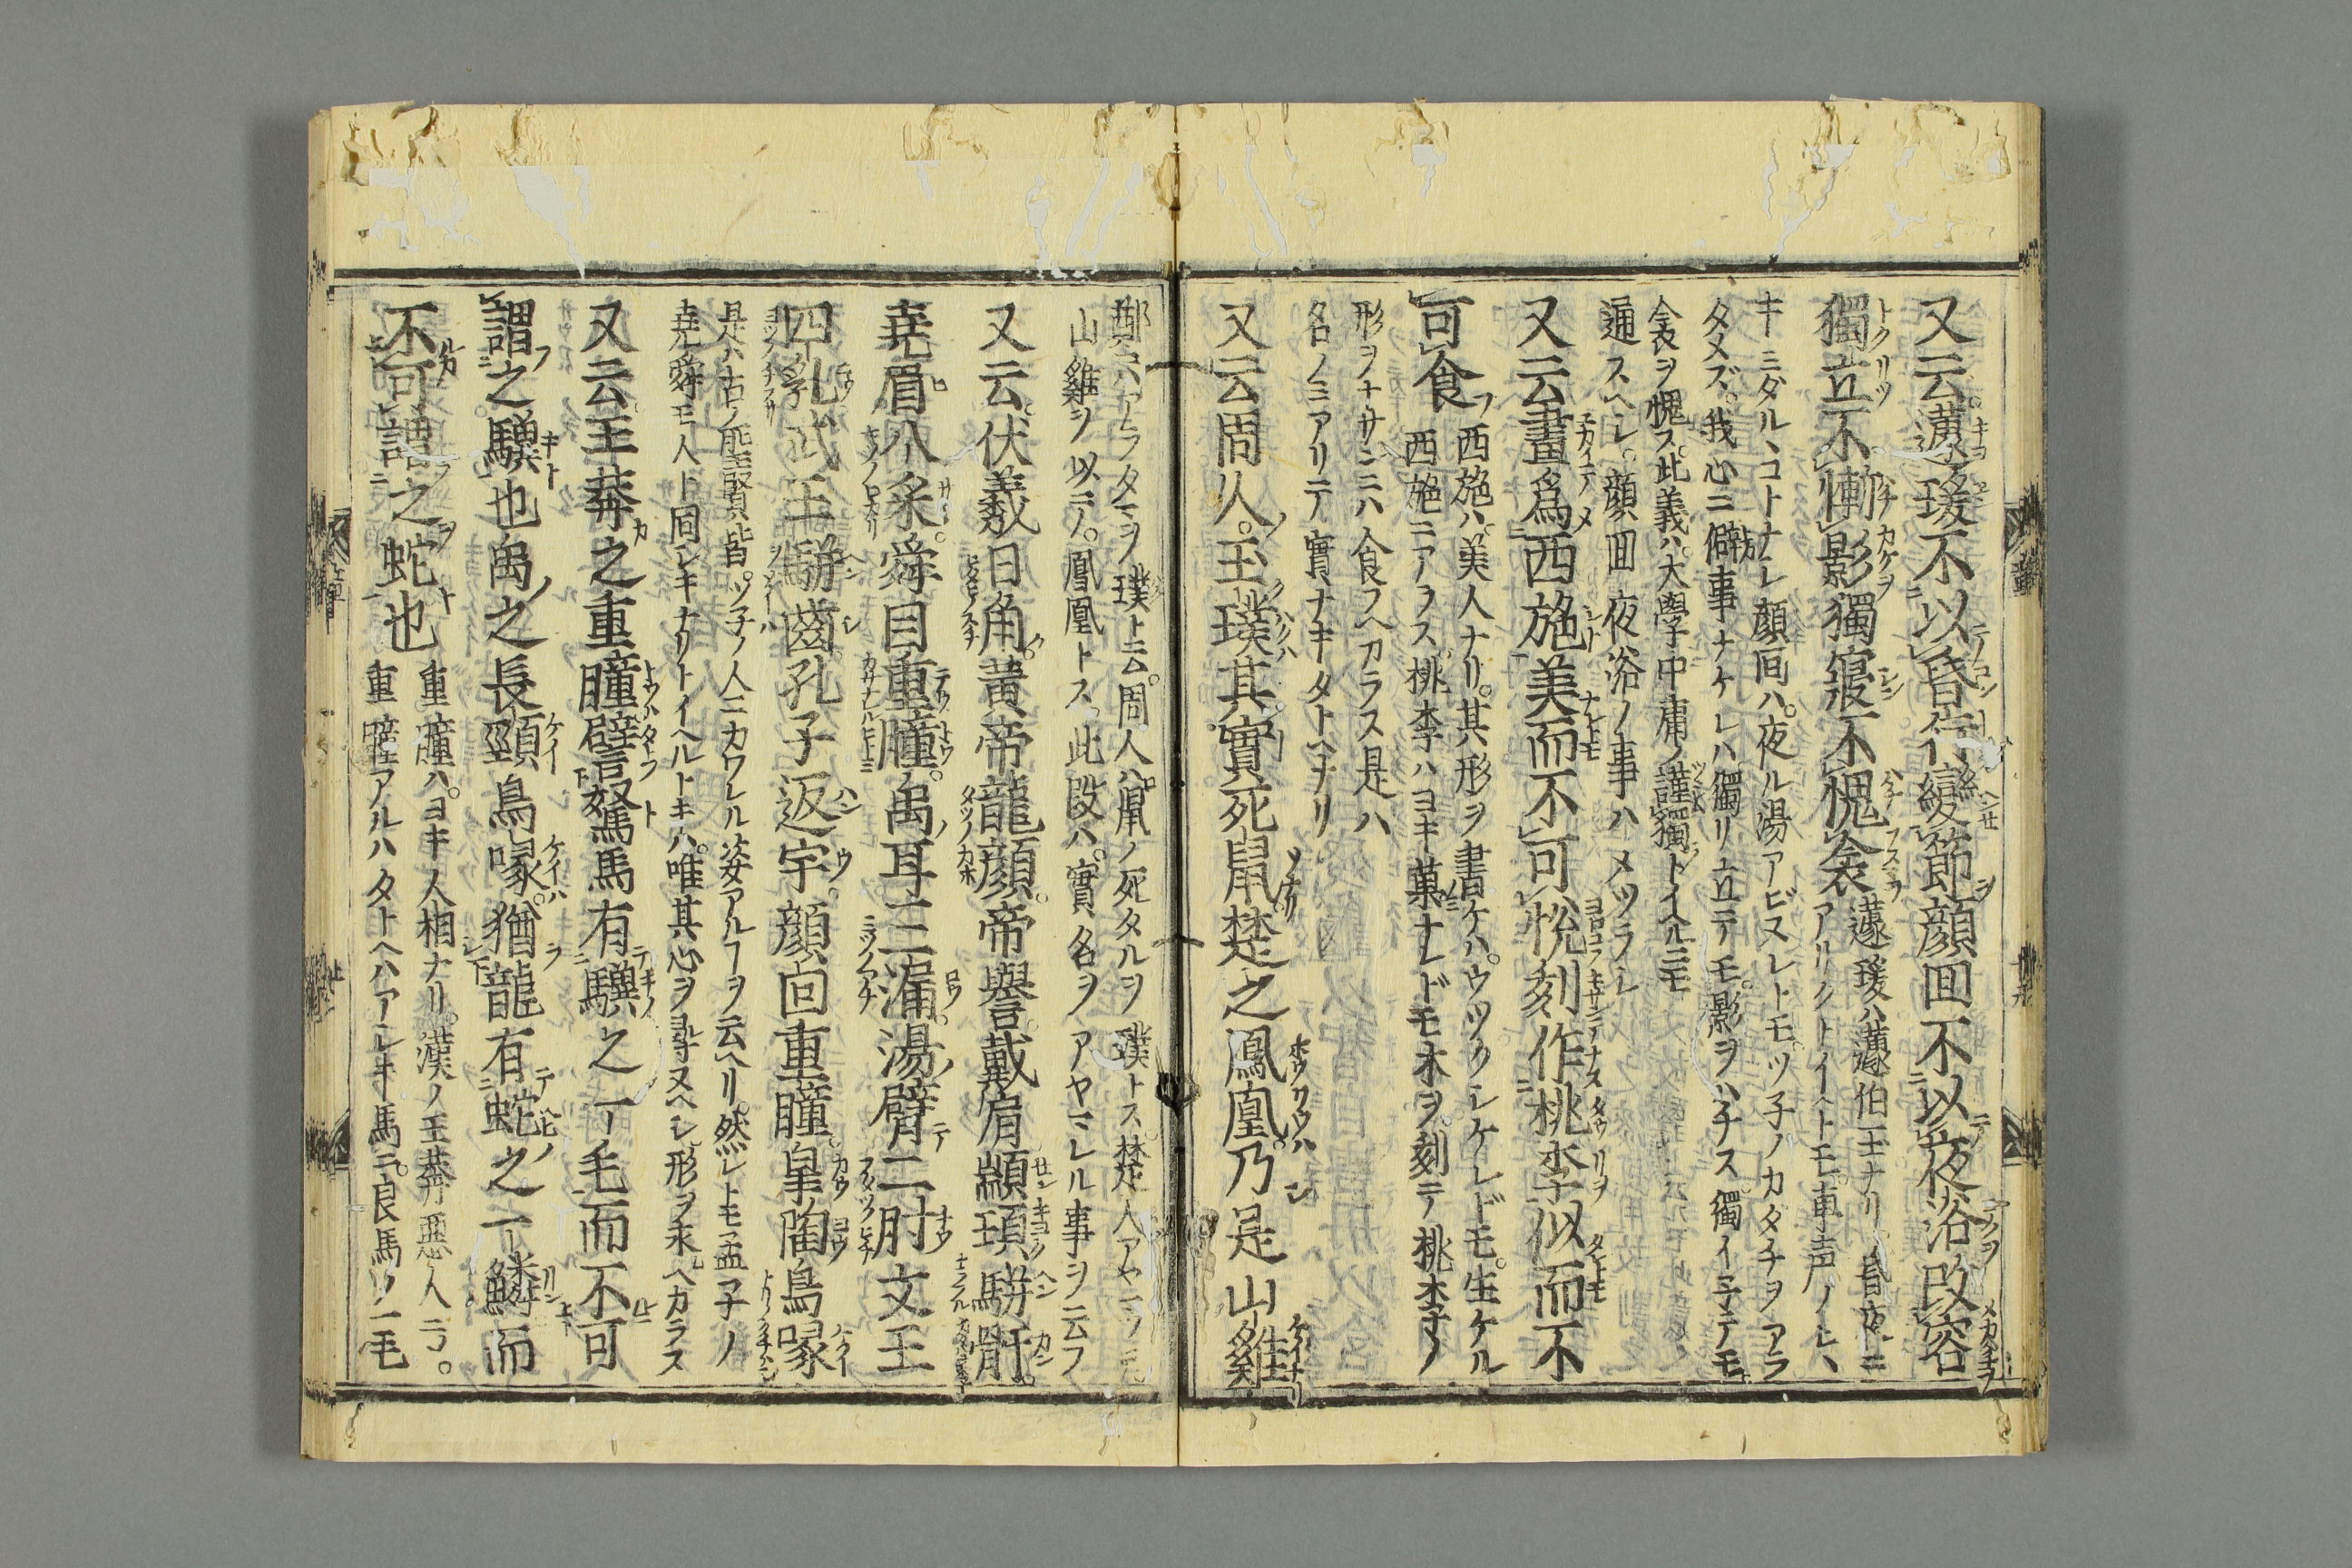 又云蘧瑗不以昏行變節顔回不以夜浴改容
獨立不慚影獨寝不愧衾
蘧瑗ハ蘧伯玉ナリ昏夜ニ
アリクトイヘトモ車声ノシヽ
キミダルヽコトナシ顔回ハ夜ル湯アビスレトモツ子ノカタチヲアラ
タメズ我心ニ僻事ナケレハ獨リ立テモ影ヲハチス獨イ子テモ
衾ヲ愧ス此義ハ大學中庸ノ謹獨トイヘルニモ
通スヘシ顔回夜浴ノ事ハメツラシ
又云畫爲西施美而不可悦刻作桃李似而不
可食
西施ハ美人ナリ其形ヲ書ケハウツクシケレドモ生ケル
西施ニアラス桃李ハヨキ菓ナレドモ木ヲ刻テ桃李ノ
形ヲナサンニハ食フヘカラス是ハ
名ノミアリテ實ナキタトヘナリ
又云周人玉璞其實死鼠楚之鳳凰乃是山雞
鄭ニハアラタマヲ璞ト云周人ハ鼠ノ死タルヲ璞トス楚人アヤマツテ
山雞ヲ以テ鳳凰トス此段ハ實名ヲアヤマレル事ヲ云フ
又云伏羲日角黄帝龍顔帝嚳戴肩顓頊駢骭
堯眉八采舜目重瞳禹耳三漏湯臂二肘文王
四乳武王駢齒孔子返宇顔回重瞳皐陶鳥喙
是ハ古ノ聖賢皆ツ子ノ人ニカワレル姿アルヿヲ云ヘリ然レトモ孟子ノ
堯舜モ人ト同シキナリトイヘルトキハ唯其心ヲ尋ヌヘシ形ヲ求ヘカラス
又云王莽之重瞳譬駑馬有驥之一毛而不可
謂之驥也禹之長頸鳥喙猶龍有蛇之一鱗而
不可謂之蛇也
重瞳ハヨキ人相ナリ漢ノ王莽悪人ニテ
重瞳アルハタトヘハアシキ馬ニ良馬ノ一毛